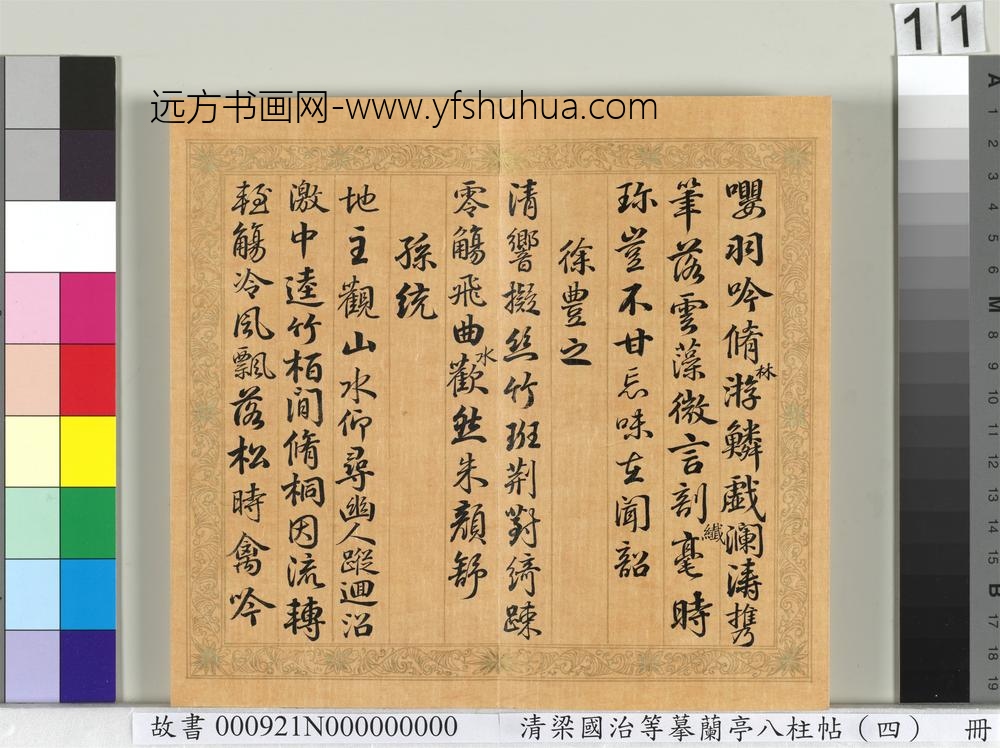 远方书画网-www.yfshuhua.com
11
嚶羽吟脩林游鱗戲瀾濤携
筆落雲藻微言剖纖毫時
珍豈不甘忘味在聞韶
徐豊之
清響擬絲竹班荊對綺踈
零觴飛曲水歡然朱顏舒
孫統
地主觀山水仰尋幽人蹤迴沼
激中逵竹栢間脩桐因流轉
輕觴冷風飄落松時禽吟
A 1 2 3 4 5 6 M 8 9 10 11 12 13 14 15 B 17 18 19
故書 000921N000000000 清梁國治等摹蘭亭八柱帖（四） 冊